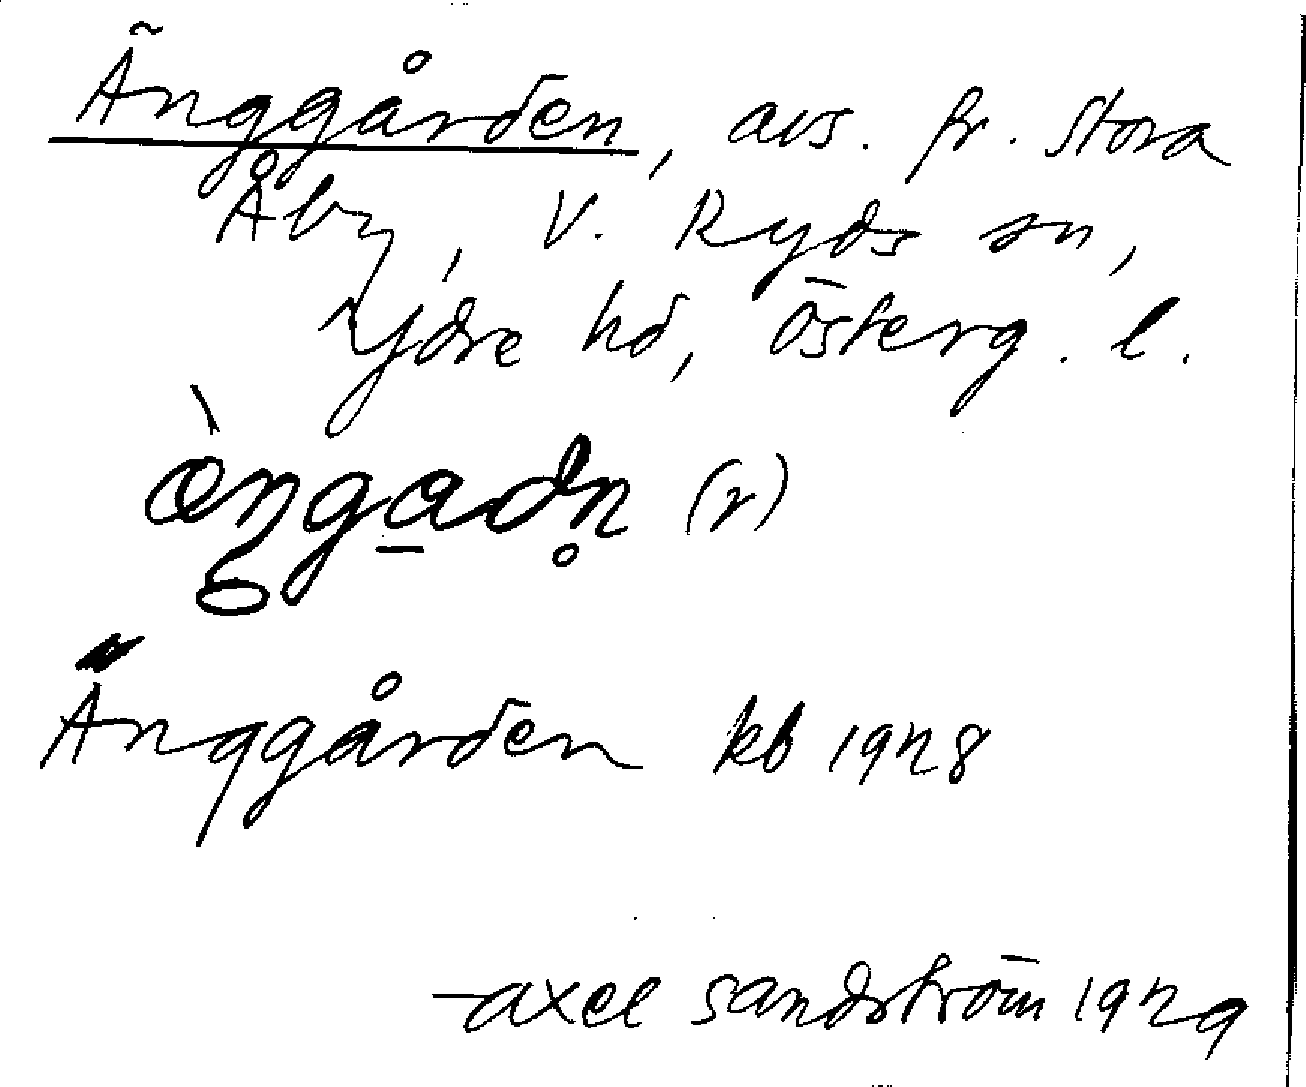 Änggården, avs. fr. Stora
Åby, V. Ryds sn,
Ydre hd, Österg. l.
(r)
Änggården kb 1928
Axel Sandström 1929